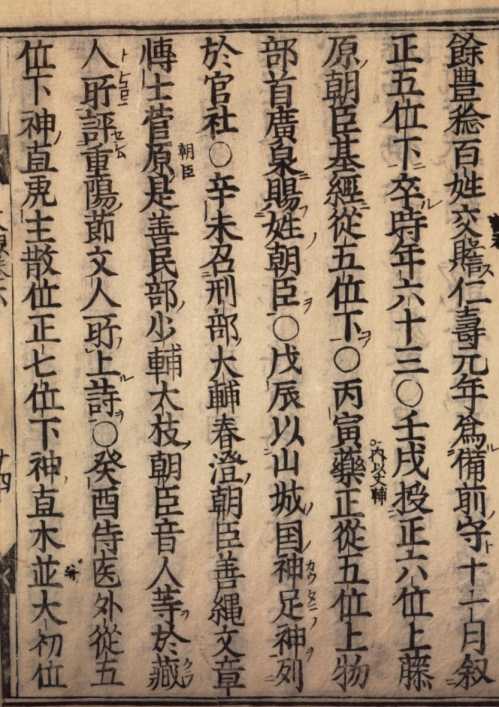 餘豊稔百姓交贍仁壽元年爲備前守十一月叙
正五位下卒時年六十三〇壬戌授正六位上藤
原朝臣基經從五位下〇丙寅藥正從五位上物
部首廣泉賜姓朝臣〇戊辰以山城国神足神列
於官社〇辛未召刑部大輔春澄朝臣善縄文章
慱士菅原朝臣是善民部少輔大枝朝臣音人等於藏
人所評重陽節文人所上詩〇癸酉侍医外從五
位下神直虎主散位正七位下神直木並大初位